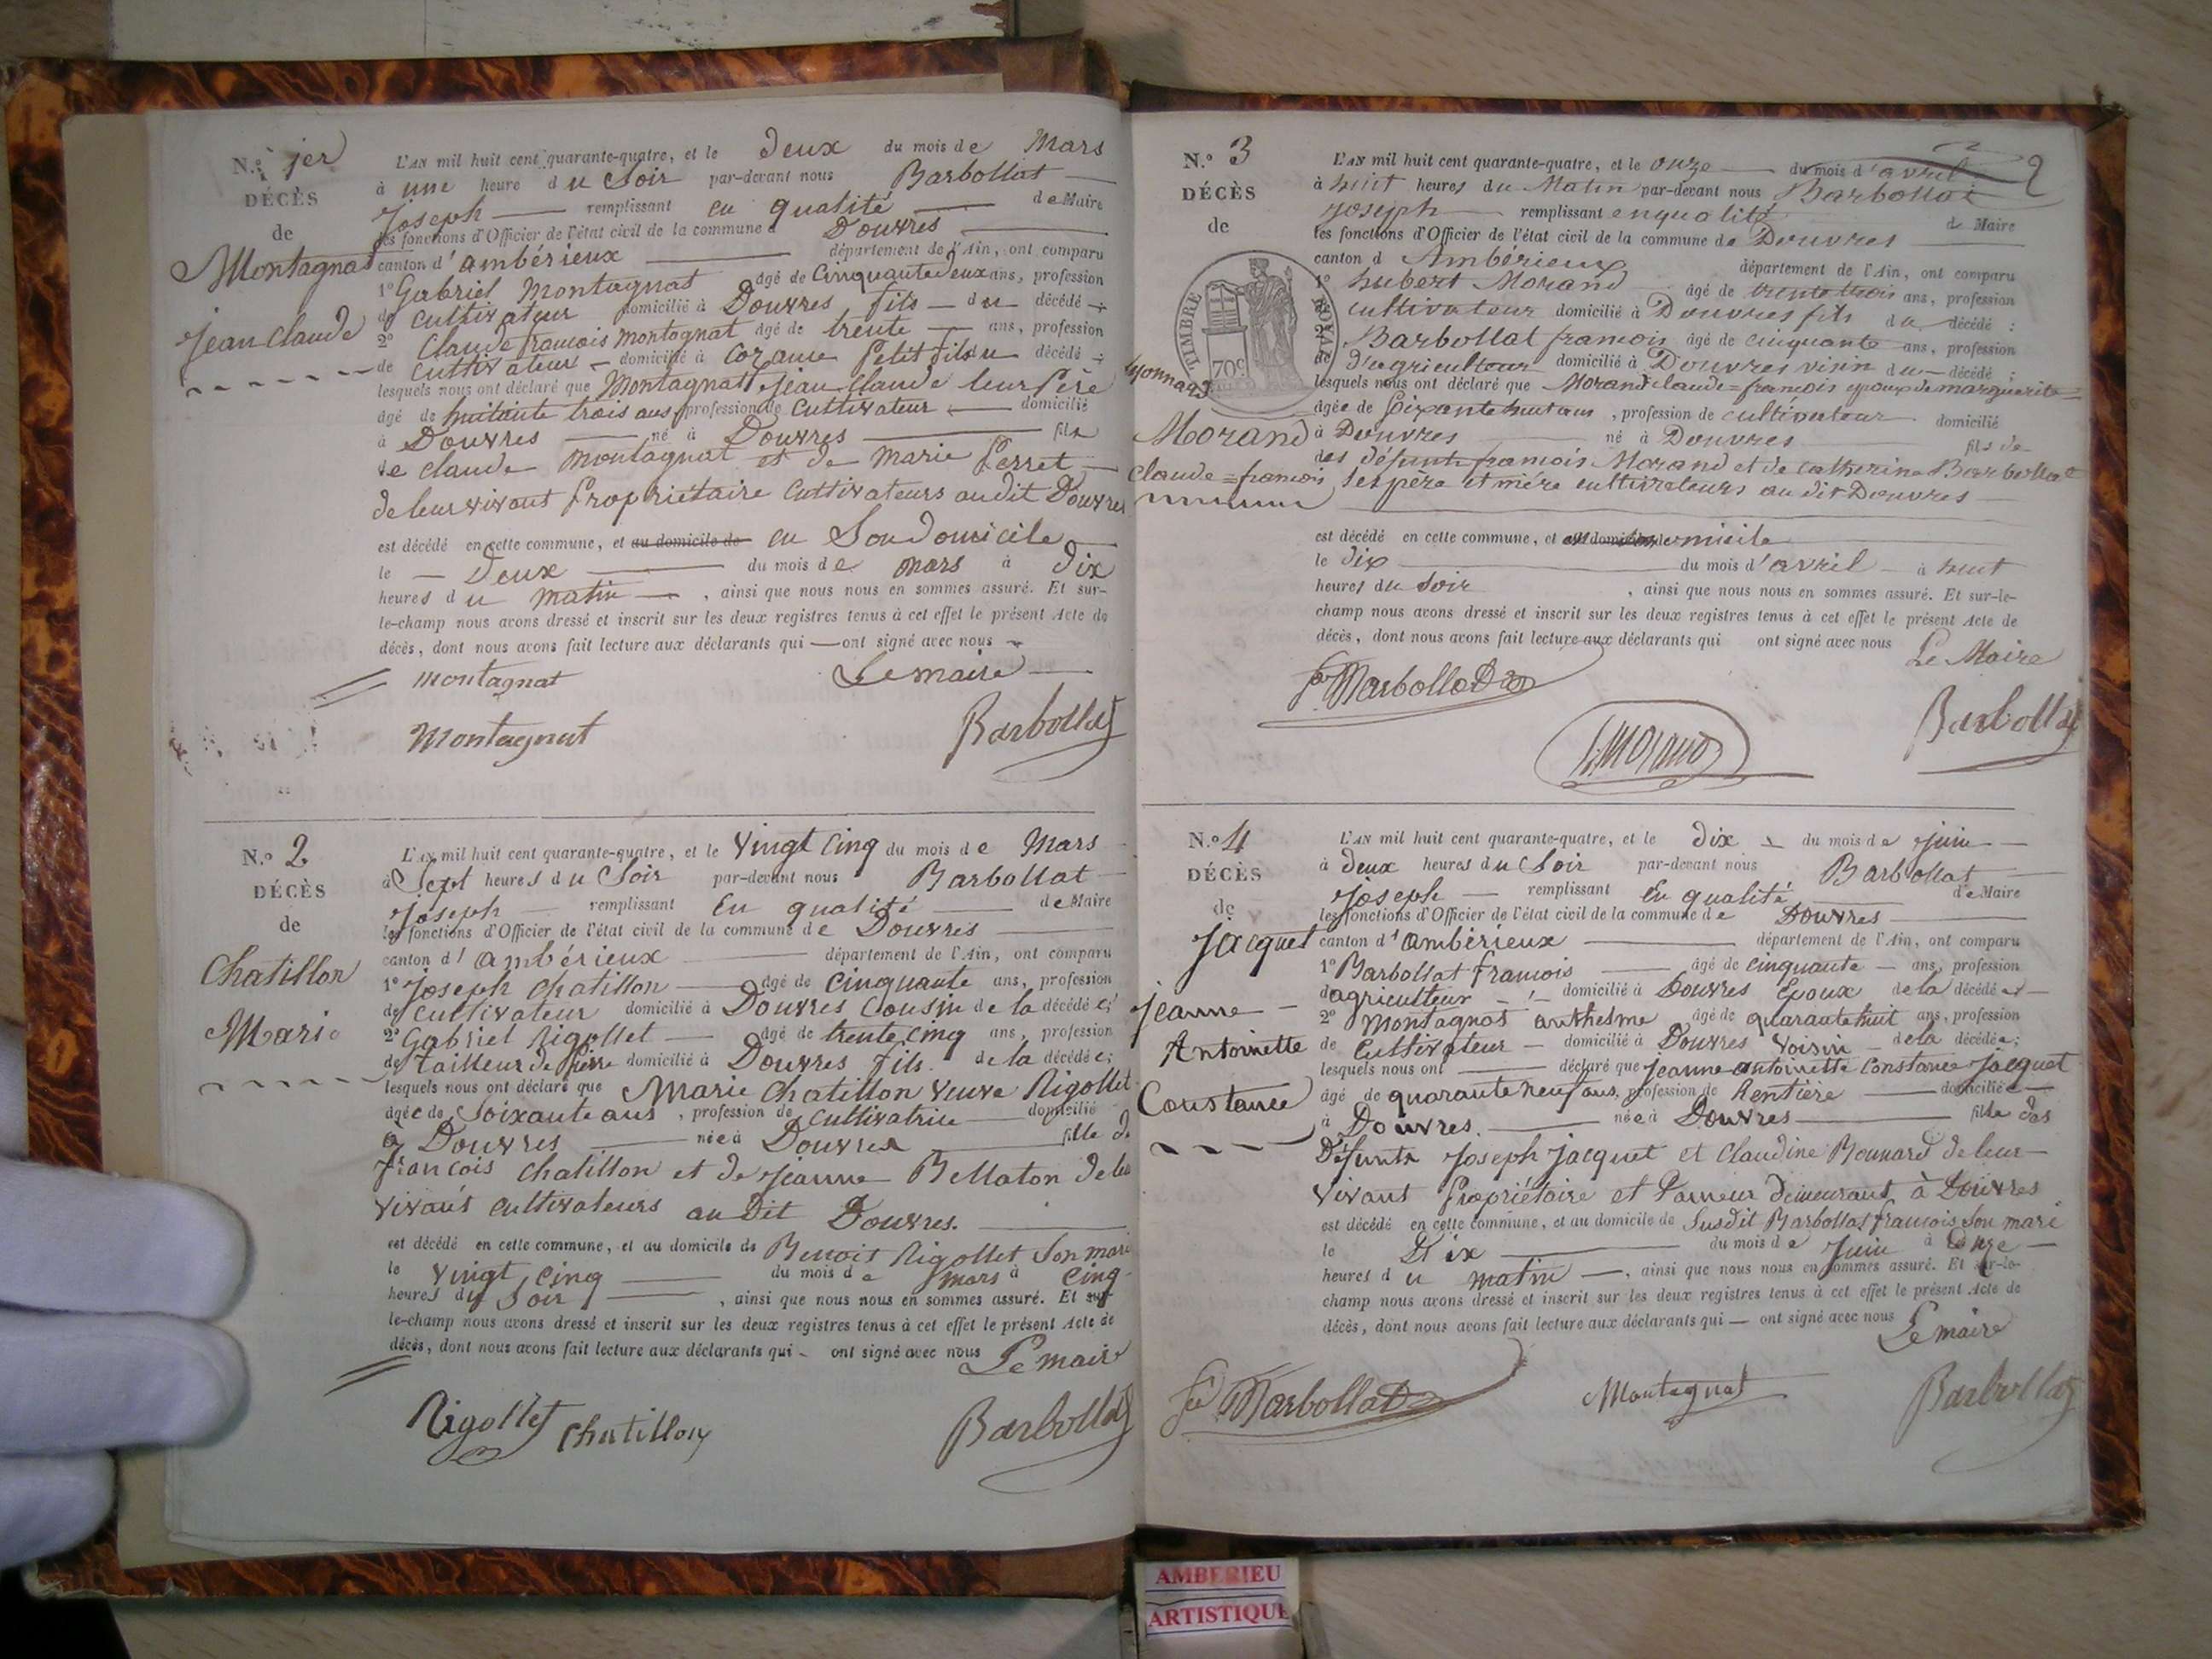 N.º 1er
DÉCÈS
de
Montagnat
Jean Claude
L'AN mil huit cent quarante-quatre, et le Deux du mois de Mars
à une heure du Soir par-devant nous Barbollat
Joseph remplissant en qualité de Maire
les fonctions d'Officier de l'état civil de la commune Douvres
canton d'ambérieux département de l'Ain, ont comparu
1º Gabriel Montagnat âgé de Cinquante deux ans, profession
de Cultivateur domicilié à Douvres fils du décédé
2º Claude françois montagnat âgé de trente ans, profession
de Cultivateur domicilié à petit fils du décédé
lesquels nous ont déclaré que Montagnat Jean Claude leur père
âgé de huitante trois ans profession de Cultivateur domicilié
à Douvres né à Douvres fils
de Claude montagnat et de Marie Perret
de leur vivant propriétaire Cultivateurs audit Douvres
est décédé en cette commune, et au domicile de en Son Domicile
le Deux du mois de mars à Dix
heures du matin , ainsi que nous nous en sommes assuré. Et sur-
le-champ nous avons dressé et inscrit sur les deux registres tenus à cet effet le présent Acte de
décès, dont nous avons fait lecture aux déclarants qui ont signé avec nous
montagnat Le maire
Montagnat Barbollat
N.º 2
DÉCÈS
de
Chatillon
Marie
L'AN mil huit cent quarante-quatre, et le Vingt Cinq du mois de Mars
à Sept heures du Soir par-devant nous Barbollat
Joseph remplissant En qualité de Maire
les fonctions d'Officier de l'état civil de la commune de Douvres
canton d'ambérieux département de l'Ain, ont comparu
1º Joseph Chatillon âgé de Cinquante ans, profession
de Cultivateur domicilié à Douvres Cousin de la décédée;
2º Gabriel Rigollet âgé de trente Cinq ans, profession
de tailleur de pierre domicilié à Douvres fils de la décédée;
lesquels nous ont déclaré que Marie Chatillon Veuve Rigollet
âgée de Soixante ans, profession de Cultivatrice domicilié
à Douvres née à Douvres fille de
françois Chatillon et de Jeanne Bellaton de leu
vivant cultivateurs au dit Douvres.
est décédé en cette commune, et au domicile de Benoit Rigollet Son mari
le vingt Cinq du mois de mars à Cinq
heures du Soir , ainsi que nous nous en sommes assuré. Et sur-
le-champ nous avons dressé et inscrit sur les deux registres tenus à cet effet le présent Acte de
décès, dont nous avons fait lecture aux déclarants qui ont signé avec nous Le maire
Rigollet Chatillon Barbollat
2
N.º 3
DÉCÈS
de
TIMBRE ROYAL
70c
Morand
Claude=françois
L'AN mil huit cent quarante-quatre, et le onze du mois d'avril
à huit heures du Matin par-devant nous Barbollat
Joseph remplissant en qualité de Maire
les fonctions d'Officier de l'état civil de la commune de Douvres
canton d Ambérieux département de l'Ain, ont comparu
1º hubert Morand âgé de trente trois ans, profession
cultivateur domicilié à Douvres fils du décédé;
Barbollat françois âgé de cinquante ans, profession
d'agriculteur domicilié à Douvres voisin du décédé;
lesquels nous ont déclaré que Morand claude=françois époux de marguerite=
lyonnaz
âgé de Soixante huit ans, profession de cultivateur domicilié
à Douvres né à Douvres fils de
des défunts françois Morand et de Catherine Barbollat
ses père et mère cultivateurs au dit Douvres
est décédé en cette commune, et
le dix du mois d'avril à huit
heures du Soir , ainsi que nous nous en sommes assuré. Et sur-le-
champ nous avons dressé et inscrit sur les deux registres tenus à cet effet le présent Acte de
décès, dont nous avons fait lecture aux déclarants qui ont signé avec nous
Le Maire
Barbollat
Morand
Barbollat
N.º 4
DÉCÈS
de
Jacquet
Jeanne
Antoinette
Constance
L'AN mil huit cent quarante-quatre, et le dix du mois de Juin
à deux heures du Soir par-devant nous Barbollat
Joseph remplissant En qualité de Maire
les fonctions d'Officier de l'état civil de la commune de Douvres
canton d'ambérieux département de l'Ain, ont comparu
1º Barbollat françois âgé de cinquante ans, profession
d'agriculteur domicilié à Douvres Epoux de la décédée
2º Montagnat anthelme âgé de quarante huit ans, profession
de Cultivateur domicilié à Douvres Voisin de la décédée;
lesquels nous ont déclaré que Jeanne antoinette Constance Jacquet
âgé de quarante neuf ans, profession de Rentière domiciliée
à Douvres. née à Douvres fille des
Défunts Joseph Jacquet et Claudine Bonnard de leur
vivant propriétaire et demeurant à Douvres
est décédé en cette commune, et au domicile de Susdit Barbollat françois Son mari
le Dix du mois de Juin à onze
heures du matin , ainsi que nous nous en sommes assuré. Et sur-le-
champ nous avons dressé et inscrit sur les deux registres tenus à cet effet le présent Acte de
décès, dont nous avons fait lecture aux déclarants qui ont signé avec nous
Le maire
Barbollat Montagnat Barbollat
AMBERIEU
ARTISTIQUE